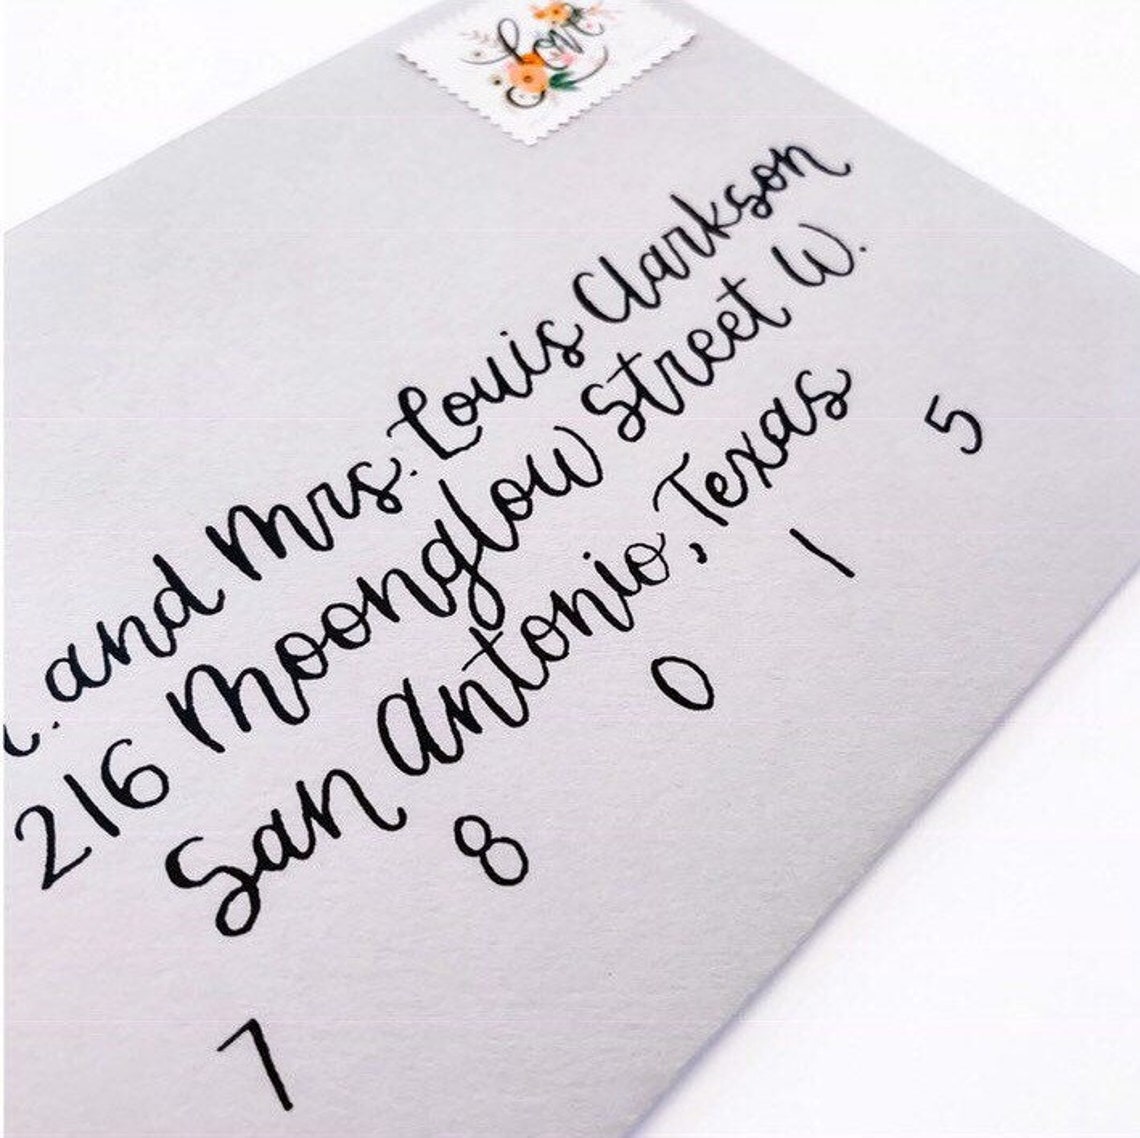 Love
. and Mrs. Louis Clarkson
216 Moonglow Street W.
San Antonio, Texas
7 8 0 1 5